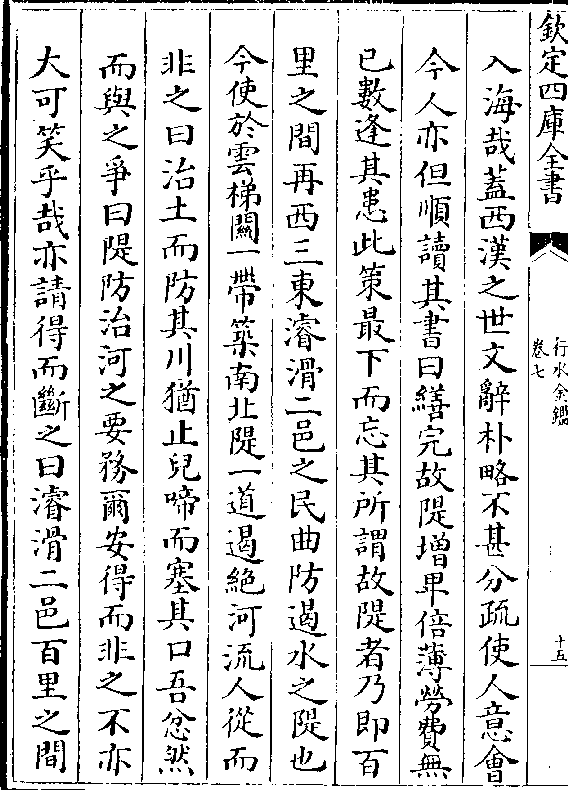 欽定四庫全書
行水金鑑
卷七
十五
入海哉蓋西漢之世文辭朴略不甚分疏使人意會
今人亦但順讀其書曰繕完故隄增卑倍薄勞費無
已數逢其患此策最下而忘其所謂故隄者乃即百
里之間再西三東濬滑二邑之民曲防遏水之隄也
今使於雲梯關一帶築南北隄一道遏絶河流人從而
非之曰治土而防其川猶止兒啼而塞其口吾忿然
而與之爭曰隄防治河之要務爾安得而非之不亦
大可笑乎哉亦請得而斷之曰濬滑二邑百里之間